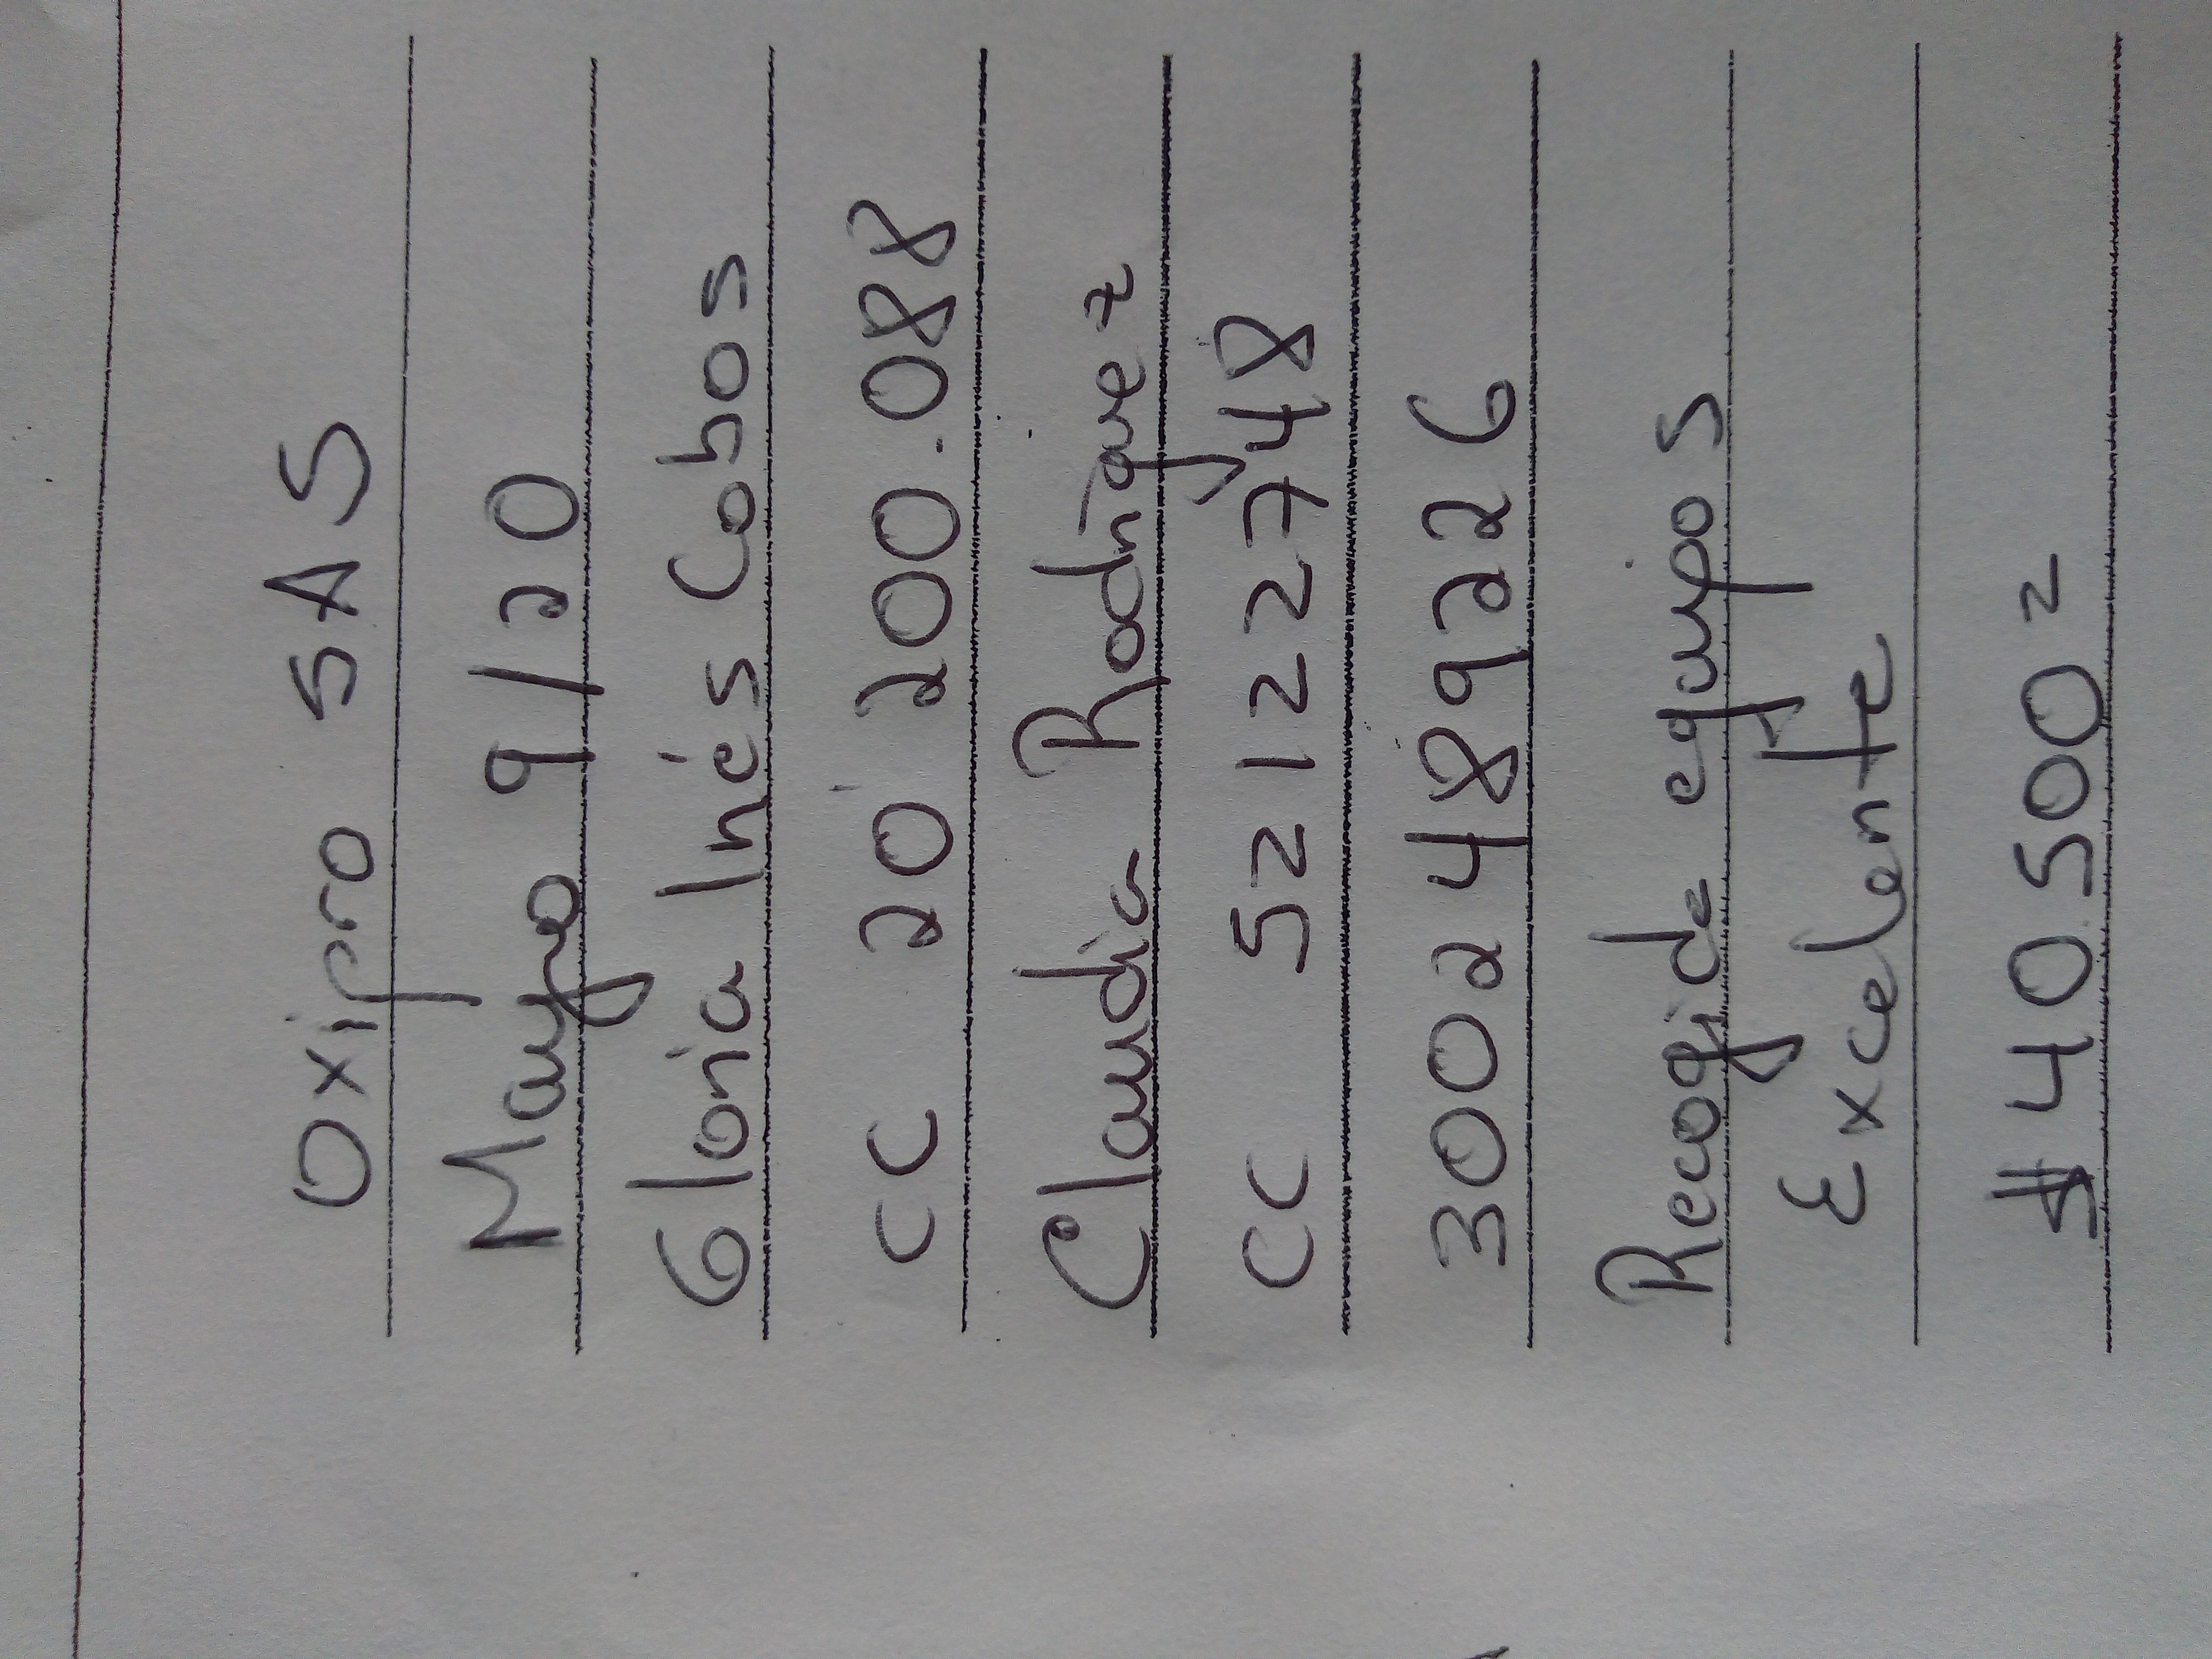 Oxipro SAS
Mayo 9/20
Gloria Inés Cobos
CC 20'200.088
Claudia Rodriguez
CC 52122748
3002489226
Recogida equipos
Excelente
$40.500=